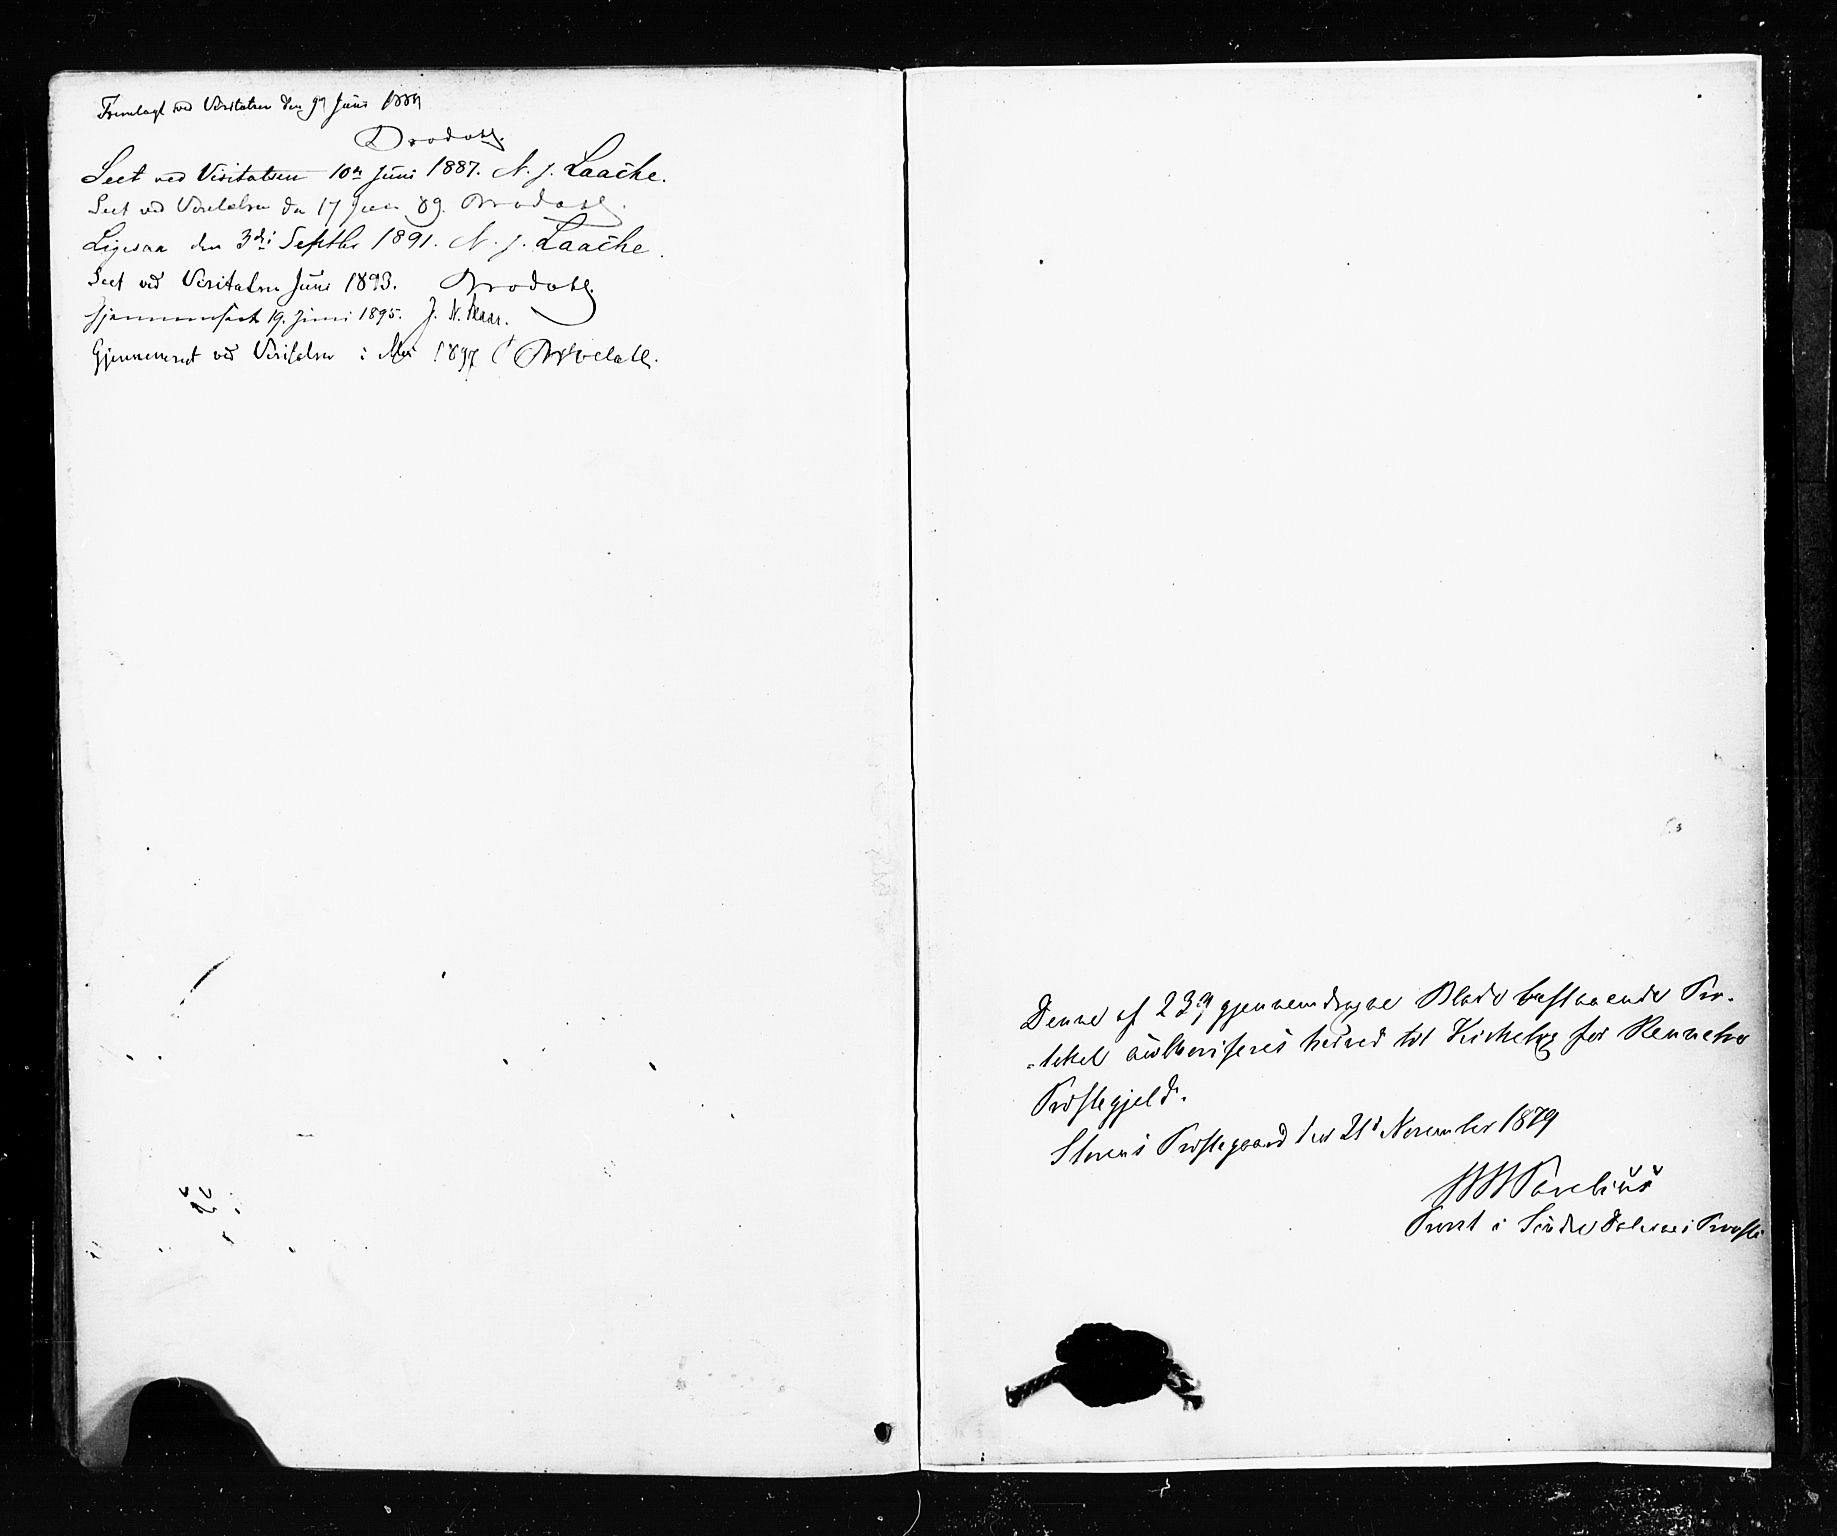 Fremlagt ved Visitatsen den 9de Juni 1884
Brodahl.
Seet ved Visitatsen 10de Juni 1887. N. J. Laache.
Seet ved Visitatsen den 17 Juni 89. Brodahl.
Ligesaa den 3die Septbr 1891. N. J. Laache.
Seet ved Visitatsen Juni 1893. Brodahl.
Gjennemseet 19. Juni 1895. J. N. Skaar.
Gjennemseet ved Visitatsen i Mai 1897 Brodahl.
Denne af 239 gjennemdragne Blade bestaaende Pro-
-tokol authoriseres herved til Kirkebog for Rennebo
Præstegjeld.
Størens Præstegaard den 21d November 1879
Parelius
Provst i Søndre Dalernes Provsti